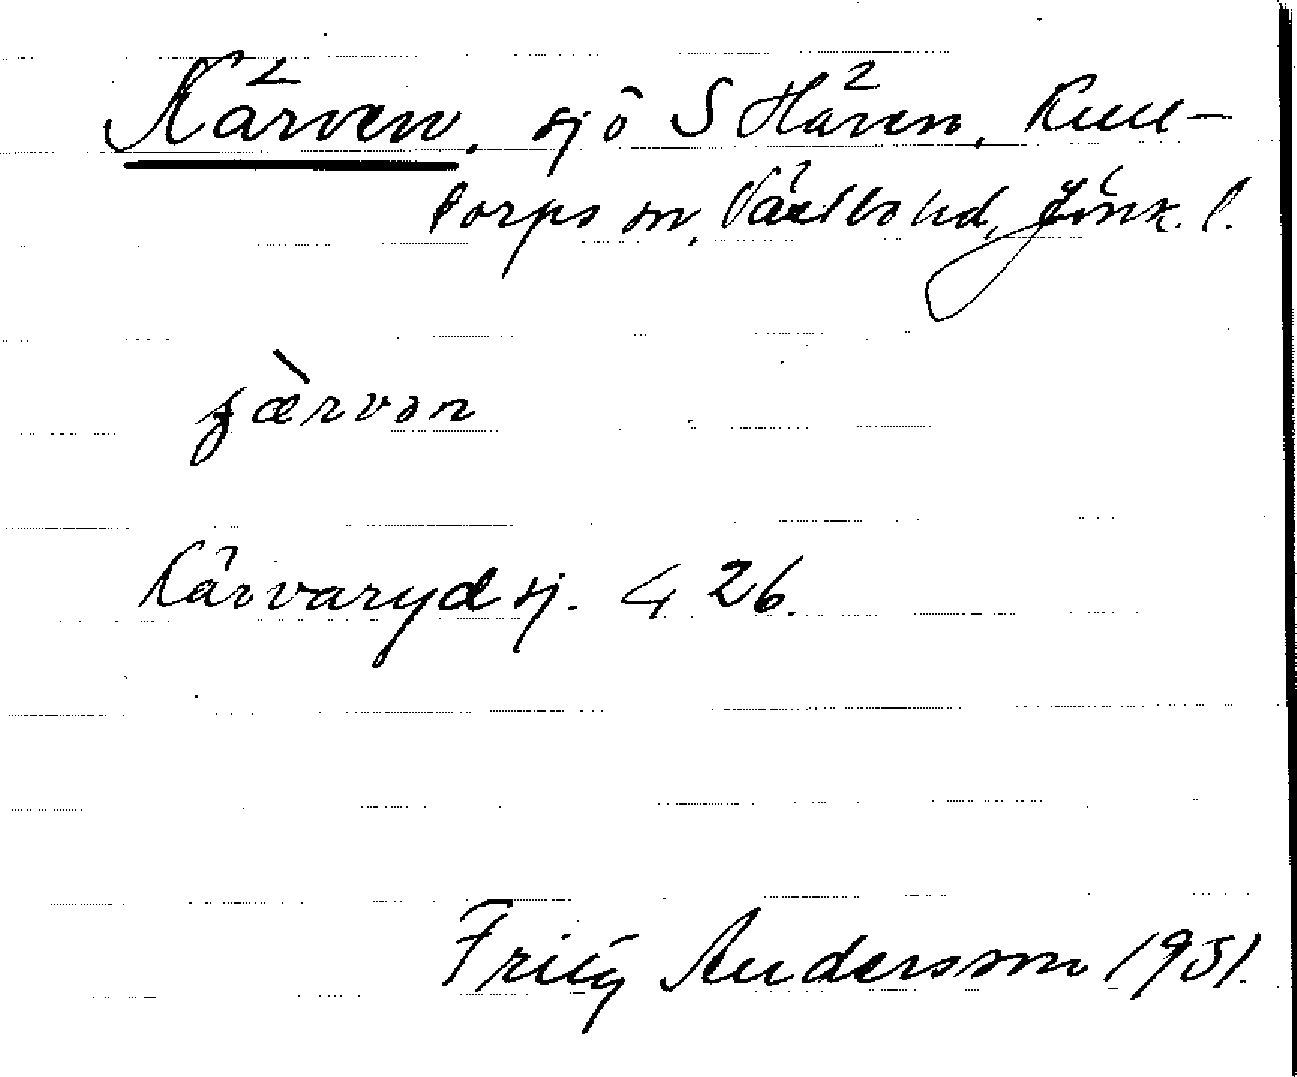 Kärven, sjö S Hären, Kull-
torps sn, Västbo hd, Jönk. l.
Kärvaryd sj. G 26.
Fritz Andersson 1931.